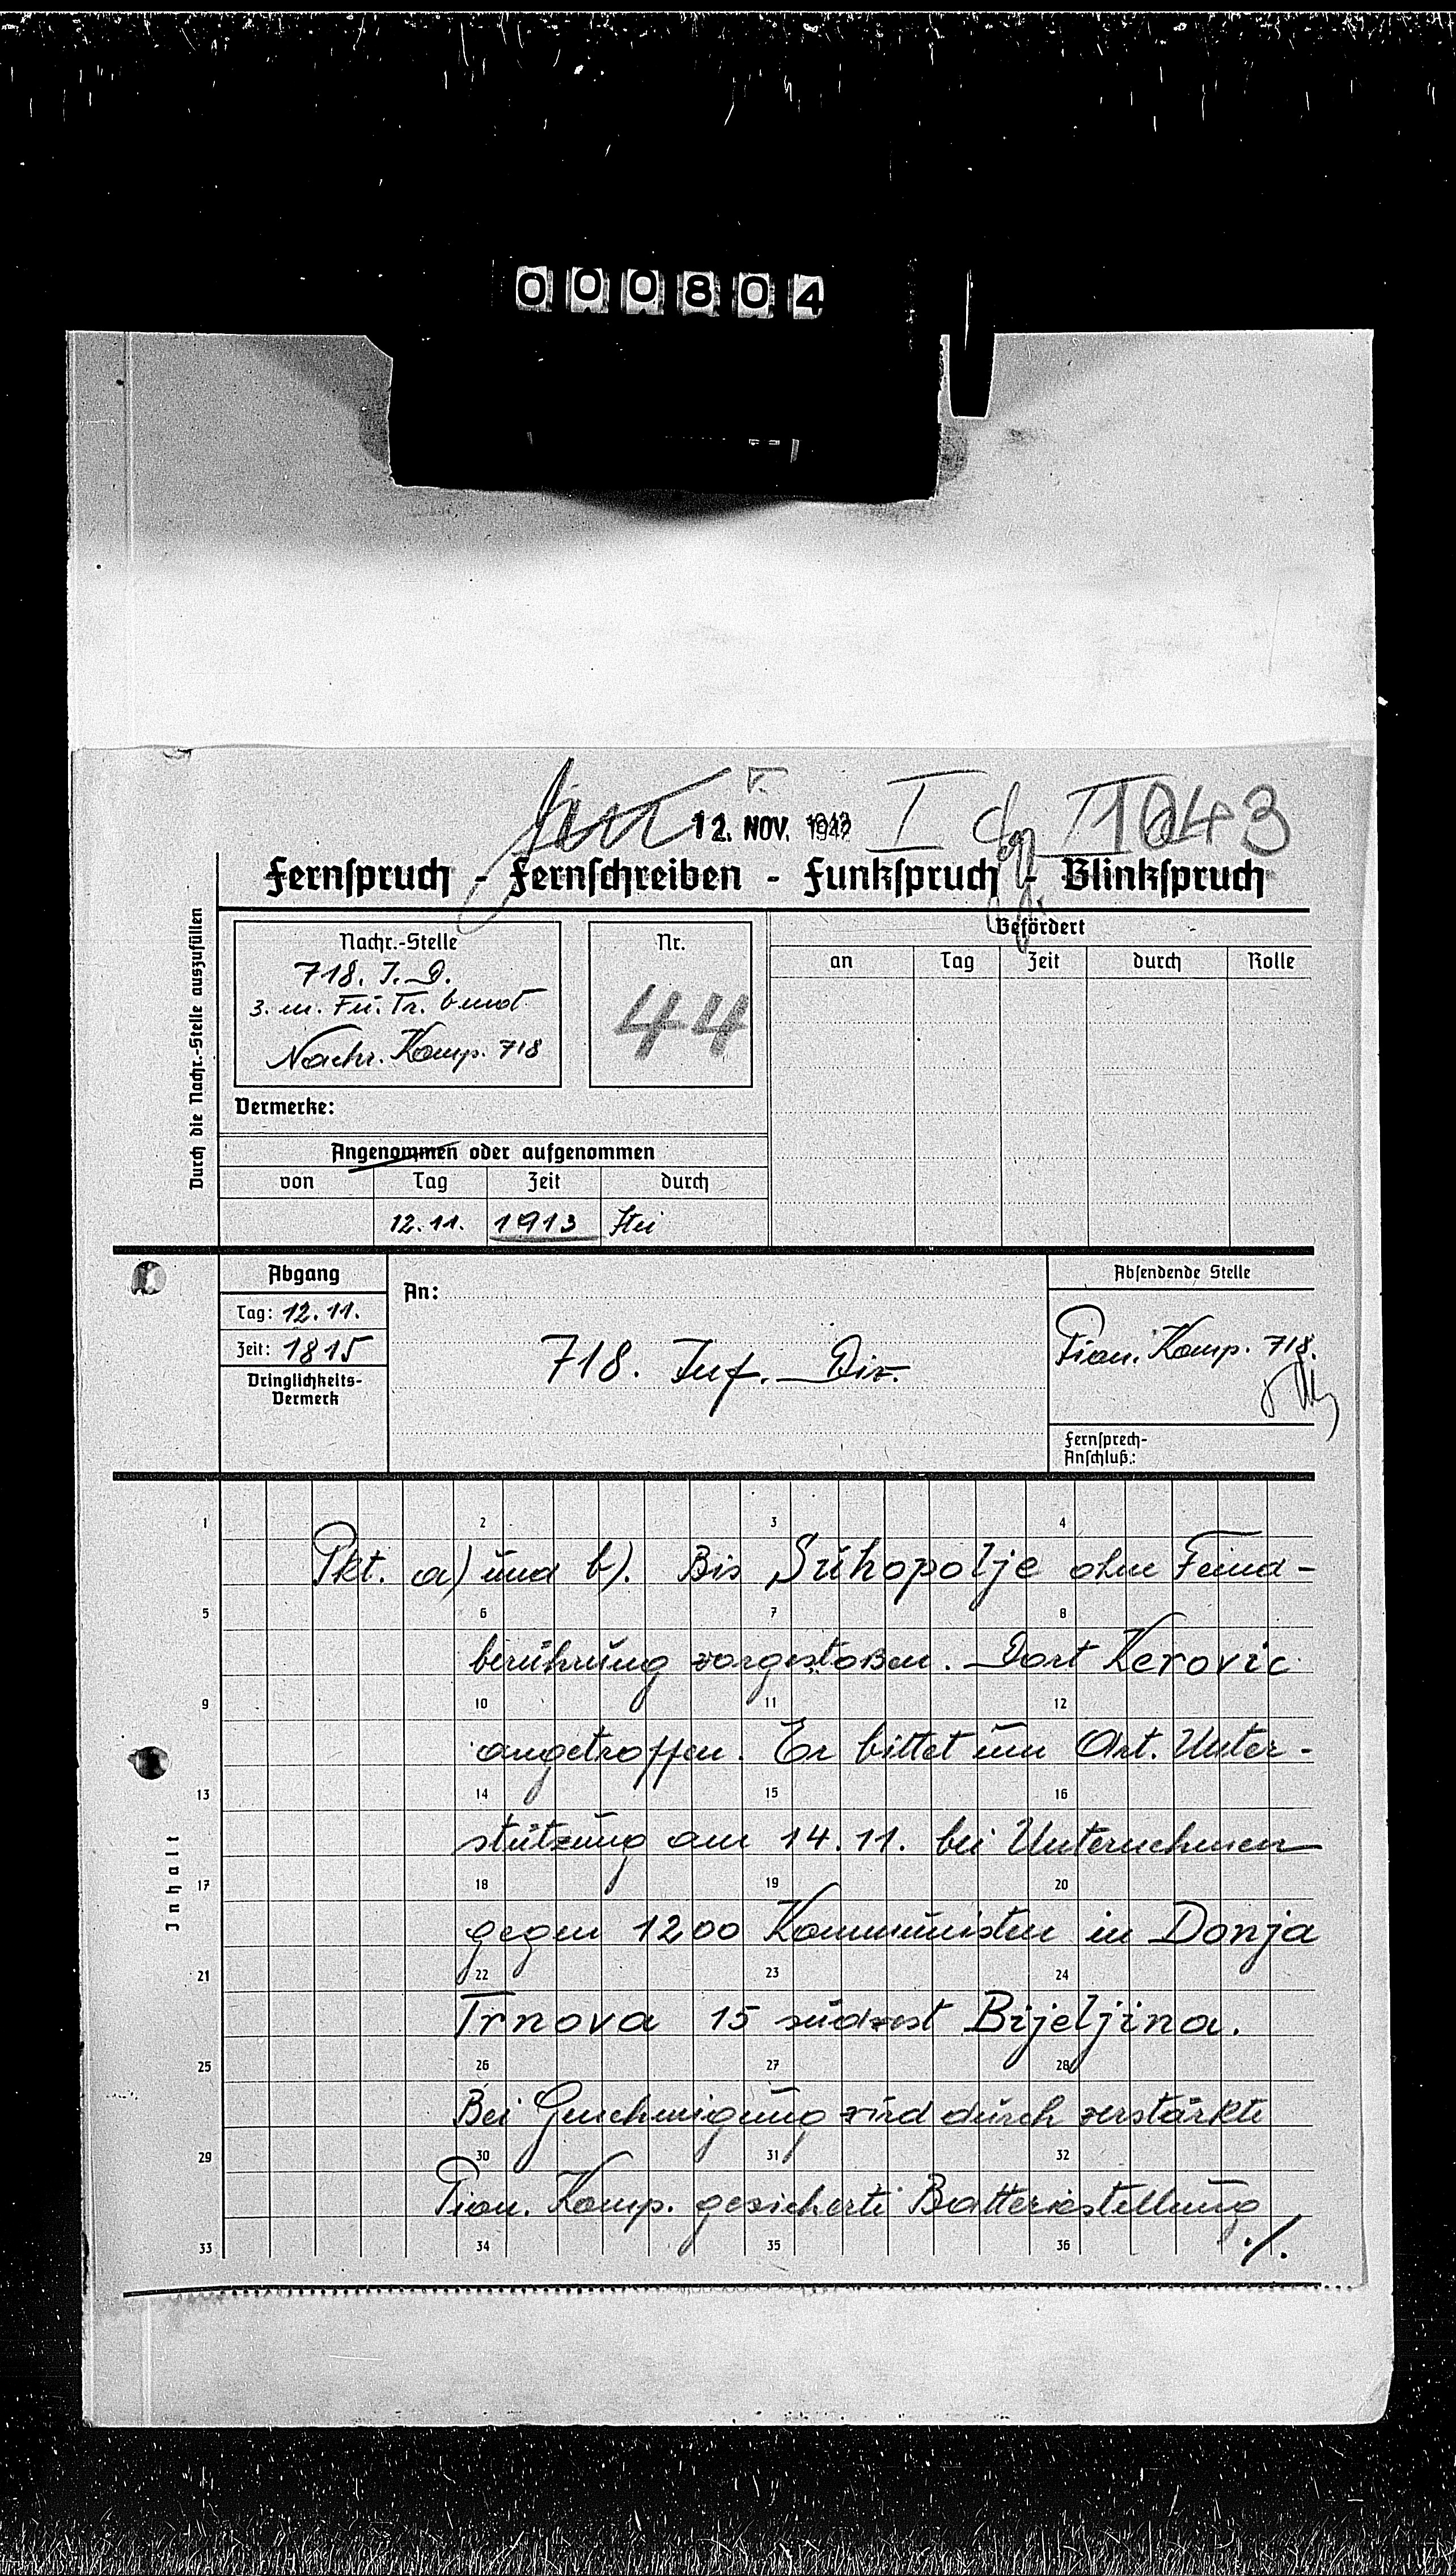 000804
12. NOV. 1942
Fernspruch - Fernschreiben - Funkspruch - Blinkspruch
Durch die Nachr.-Stelle auszufüllen
Nachr.-Stelle
718. I. D.
3. m. Fu. Tr. b mot
Nachr. Komp. 718
Nr.
44
Befördert
an Tag Zeit durch Rolle
Vermerke:
Angenommen oder aufgenommen
von Tag Zeit durch
12.11. 1913
Abgang
Tag: 12.11.
Zeit: 1815
Dringlichkeits-
Vermerk
An:
718. Inf. Div.
Absendende Stelle
Pion. Komp. 718.
Fernsprech-
Anschluß:
Inhalt
1 2 3 4
Pkt. a) und b). Bis Suhopolje ohne Feind-
5 6 7 8
berührung vorgestoßen. Dort Kerovic
9 10 11 12
angetroffen. Er bittet um Art. Unter-
13 14 15 16
stützung am 14.11. bei Unternehmen
17 18 19 20
gegen 1200 Kommunisten in Donja
21 22 23 24
Trnova 15 südwest Bijeljina.
25 26 27 28
Bei Genehmigung wird durch verstärkte
29 30 31 32
Pion. Komp. gesicherte Batteriestellung
33 34 35 36
./.